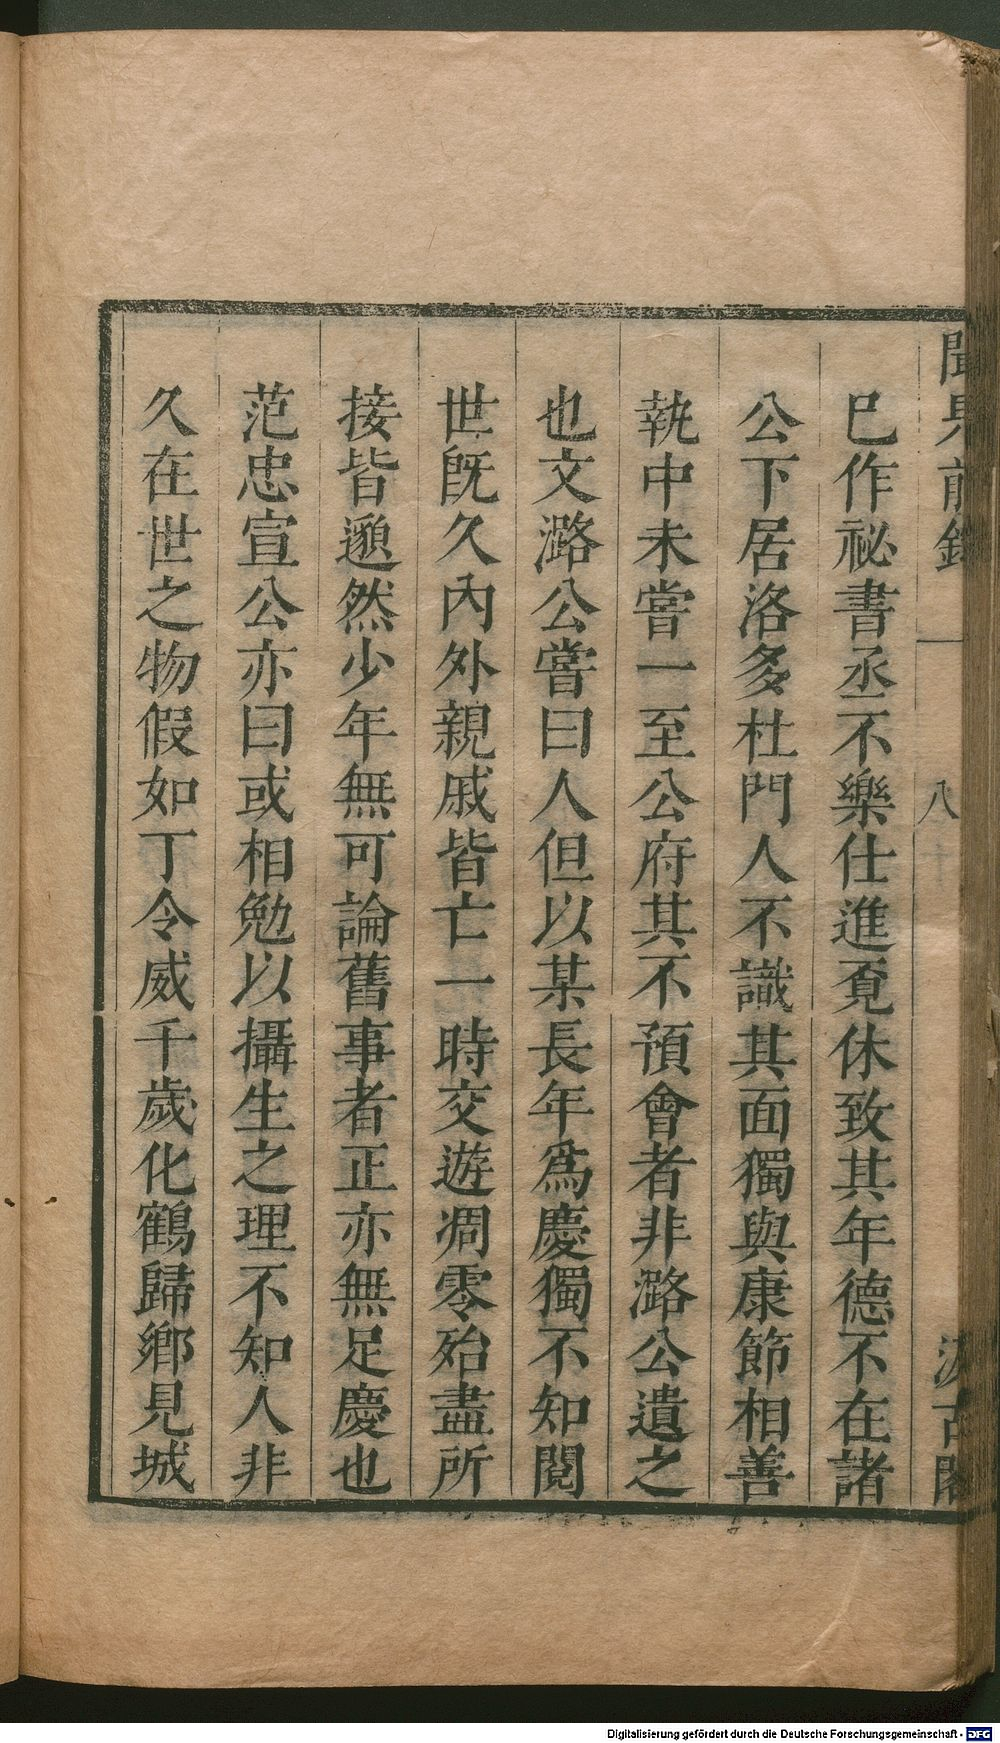 聞見前錄 一 八 汲古閣
已作祕書丞不樂仕進覔休致其年德不在諸
公下居洛多杜門人不識其面獨與康節相善
執中未嘗一至公府其不預會者非潞公遺之
也文潞公嘗曰人但以某長年爲慶獨不知閱
世旣久內外親戚皆亡一時交遊凋零殆盡所
接皆邈然少年無可論舊事者正亦無足慶也
范忠宣公亦曰或相勉以攝生之理不知人非
久在世之物假如丁令威千歲化鶴歸鄉見城
Digitalisierung gefördert durch die Deutsche Forschungsgemeinschaft - DFG